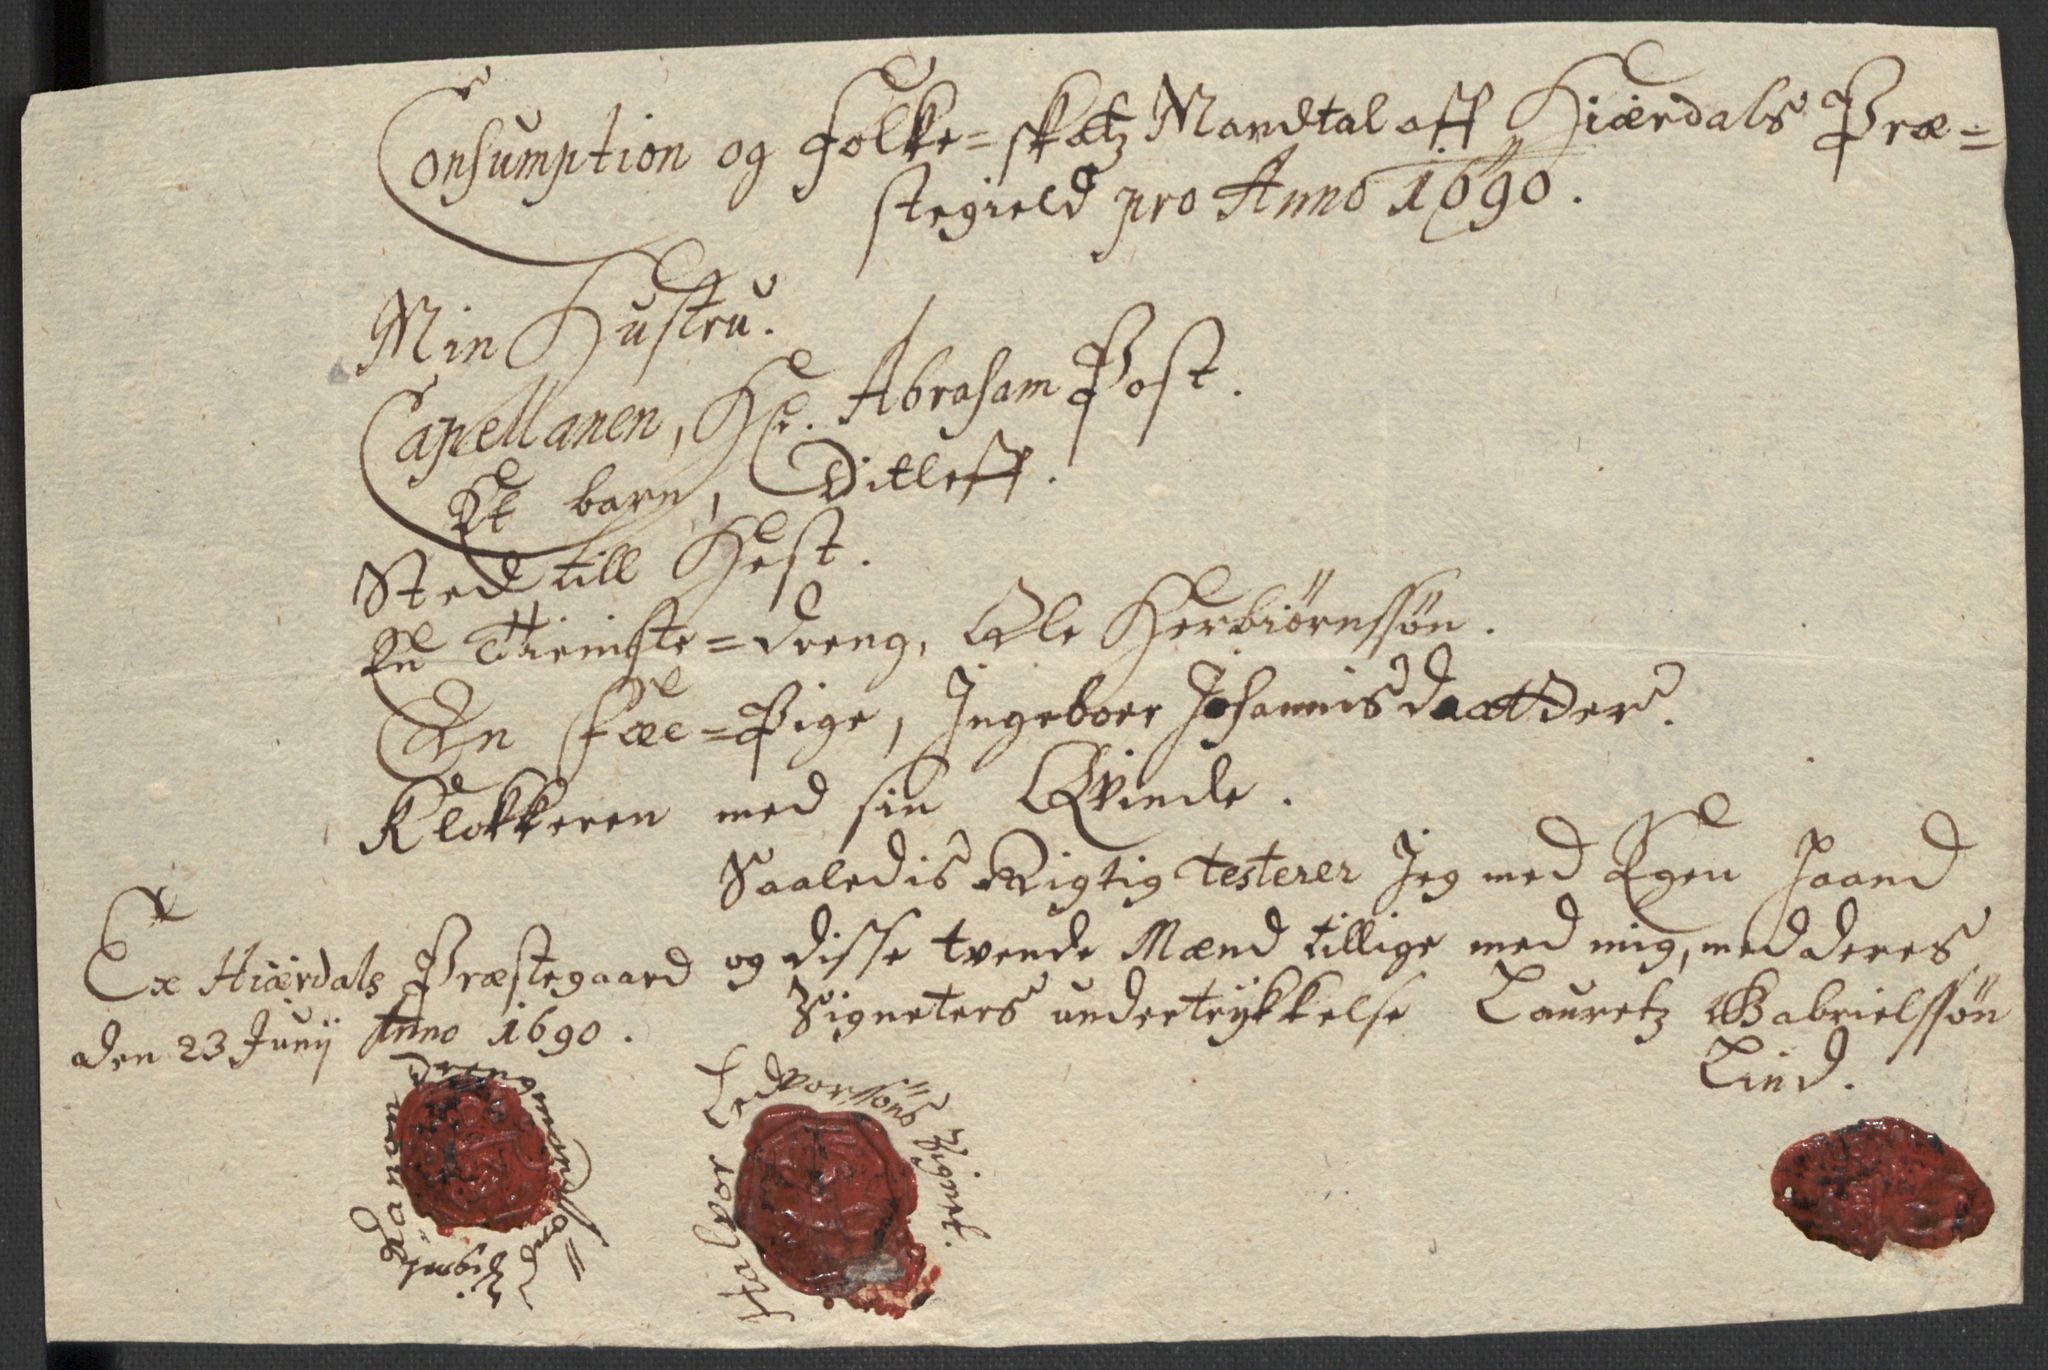 Consumption og Folke=skatz Mandtal aff Hiærdals Præ=
stegield pro Anno 1690.
Min Hustru.
Capellanen, Hr. Abraham Post.
Et barn, Ditleff.
Sted till Hest.
En Thieniste=dreng, Ole Herbiörnssön.
En Fæe=Pige, Ingeboer Johannisdaatter.
Klokkeren med sin Qvinde.
Saaledis Rigtig testerer Jeg med Egen Haand
og disse tvende Mænd tillige med mig, med deres
Signeters undertrÿkkelse Lauretz Gabrielssön
Lind.
Ex Hiærdals Præstegaard
den 23 Junij Anno 1690.
Halvor Ledvorssöns Signet.
Signet